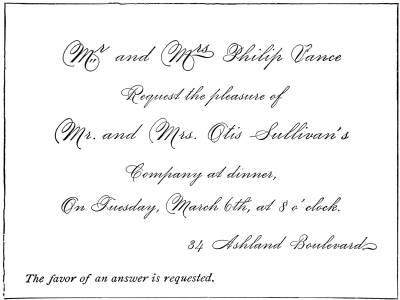 Mr and Mrs Philip Vance
Request the pleasure of
Mr. and Mrs. Otis Sullivan's
Company at dinner,
On Tuesday, March 6th, at 8 o'clock.
34 Ashland Boulevard
The favor of an answer is requested.